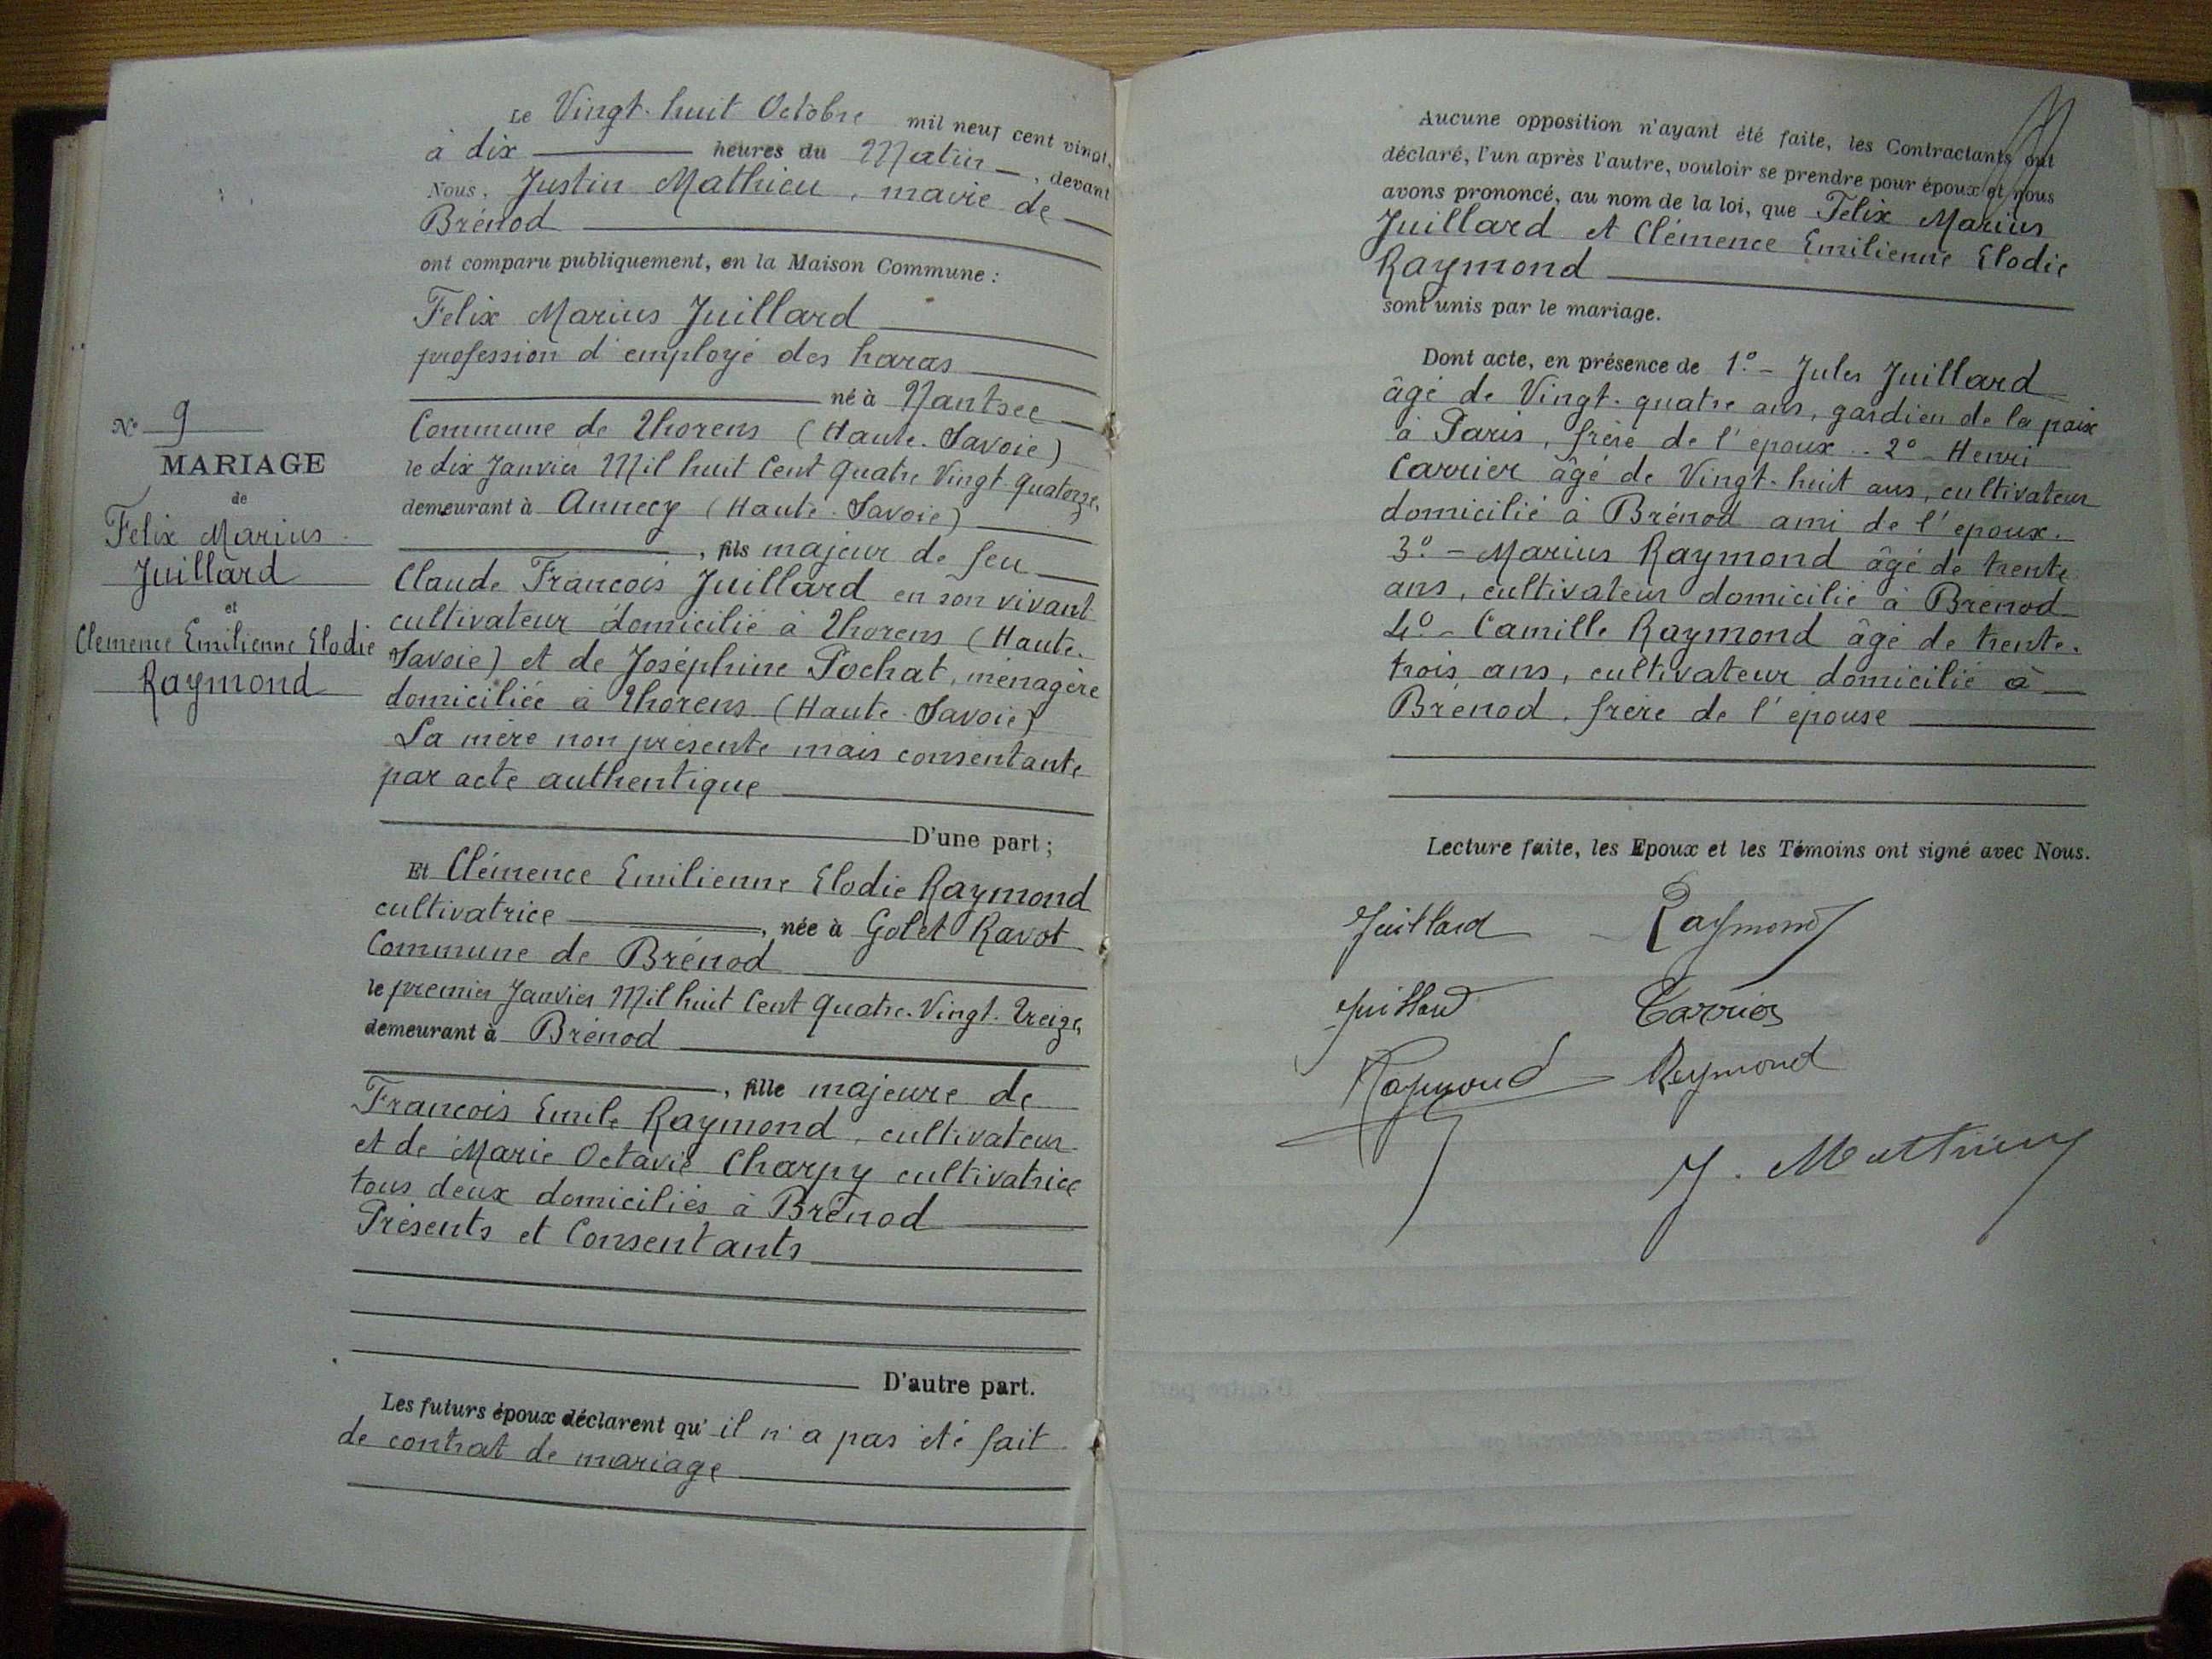 Le Vingt-huit Octobre mil neuf cent vingt,
à dix heures du Matin, devant
Nous, Justin Mathieu, maire de
Brénod
ont comparu publiquement, en la Maison Commune :
Felix Marius Juillard
profession d'employé des haras
né à Nantsec
Commune de Thorens (Haute-Savoie)
le dix Janvier Mil huit Cent Quatre Vingt Quatorze,
demeurant à Annecy (Haute-Savoie)
, fils majeur de feu
Claude François Juillard en son vivant
cultivateur domicilié à Thorens (Haute-
Savoie) et de Joséphine Pochat, ménagère
domiciliée à Thorens (Haute-Savoie)
La mère non présente mais consentante
par acte authentique
D'une part ;
Et Clémence Emilienne Elodie Raymond
cultivatrice, née à Golet Ravot
Commune de Brénod
le premier Janvier Mil huit Cent Quatre-Vingt-Treize,
demeurant à Brénod
, fille majeure de
François Emile Raymond, cultivateur
et de Marie Octavie Charpy cultivatrice
tous deux domiciliés à Brénod
Présents et Consentants
D'autre part.
Les futurs époux déclarent qu'il n'a pas été fait
de contrat de mariage
N° 9
MARIAGE
de
Felix Marius
Juillard
et
Clemence Emilienne Elodie
Raymond
Aucune opposition n'ayant été faite, les Contractants ont
déclaré, l'un après l'autre, vouloir se prendre pour époux et nous
avons prononcé, au nom de la loi, que Felix Marius
Juillard et Clémence Emilienne Elodie
Raymond
sont unis par le mariage.
Dont acte, en présence de 1.° - Jules Juillard
âgé de Vingt-quatre ans, gardien de la paix
à Paris, frère de l'époux .. 2° - Henri
Carrier âgé de Vingt-huit ans, cultivateur
domicilié à Brénod ami de l'époux.
3.° - Marius Raymond âgé de trente
ans, cultivateur domicilié à Brénod
4.° - Camille Raymond âgé de trente-
trois ans, cultivateur domicilié à
Brénod, frère de l'épouse
Lecture faite, les Epoux et les Témoins ont signé avec Nous.
Juillard Raymond
Juillard Carrier
Raymond Raymond
J. Mathieu